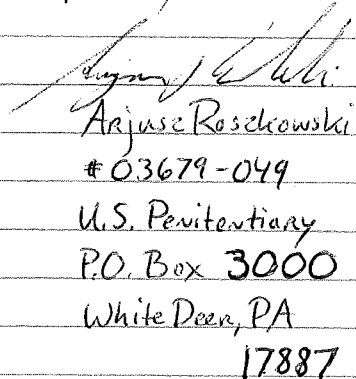 Arjusz Roszkowski
# 03679-049
U.S. Penitentiary
P.O. Box 3000
White Deer, PA
17887